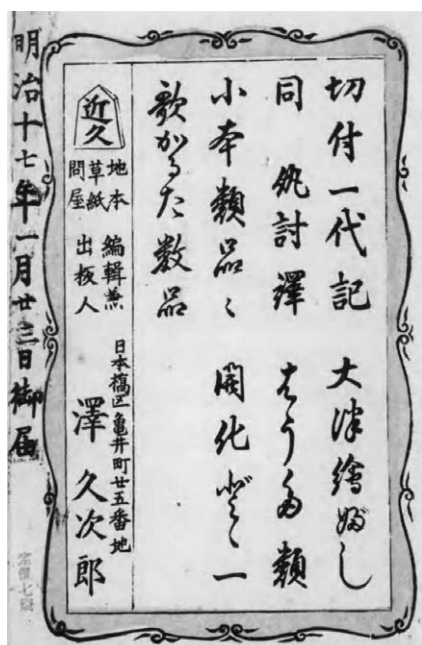 切付一代記　大津繪ぶし
同　仇討譯　類
小本類品〻　開化どゝ一
歌かるた数品
近久
地本
草紙
問屋
編輯兼
出板人
日本橋区亀井町廿五番地
澤久次郎
明治十七年一月廿三日御届